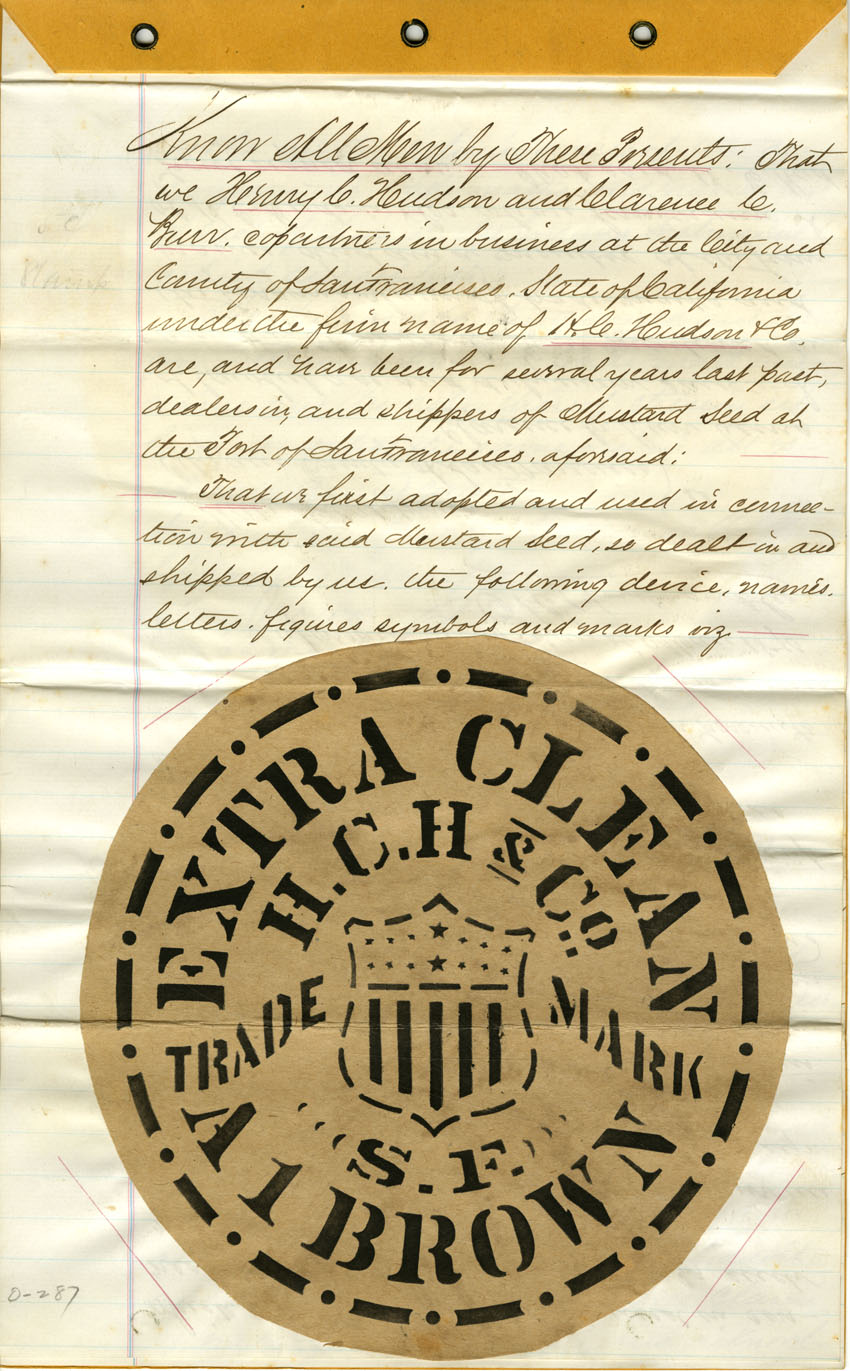 Know All Men by These Presents: That
we Henry C. Hudson and Clarence C.
Burr. copartners in business at the City and
County of San Francisco. State of California
under the firm name of H. C. Hudson & Co.
are, and have been for several years last past,
dealers in, and shippers of Mustard Seed at
the Port of San Francisco. aforesaid;
That we first adopted and used in connec-
tion with said Mustard Seed, so dealt in and
shipped by us. the following device, names.
letters. figures symbols and marks viz
EXTRA CLEAN
H.C.H & Co.
TRADE MARK
S.F.
A 1 BROWN
0-287